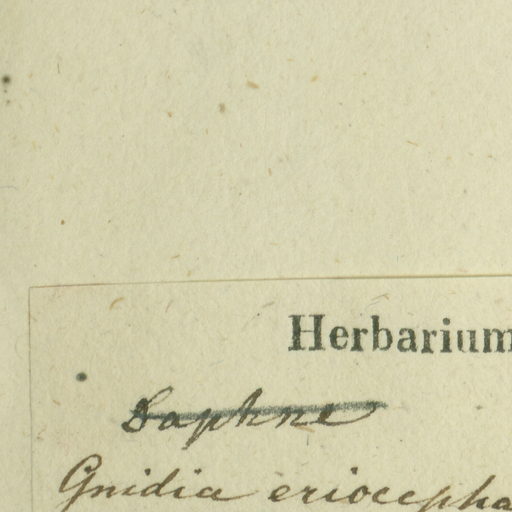 Herbarium
Daphne
Gnidia eriocepha